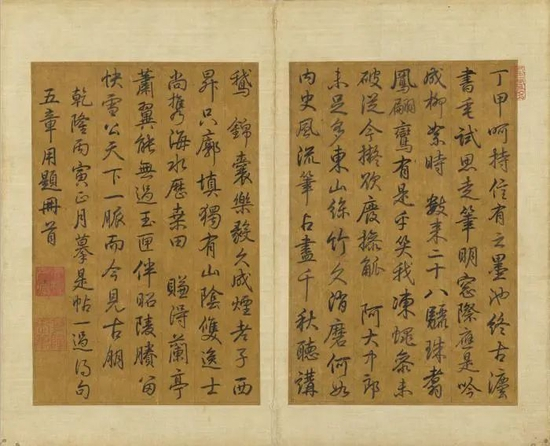 丁甲呵持信有之墨池終古
書 試思走筆明窗際應是吟
成柳絮時 數來二十八驪珠翥
鳳翩鸞有是乎笑我凍蠅參未
破從今擬欲廢操觚 阿大中郎
未足多東山絲竹久消磨何如
內史風流筆占盡千秋聽講
鵝 錦囊樂毅久成煙老子西
昇只廓填獨有山陰雙逸士
尚攜海水歷桑田 賺得蘭亭
蕭翼能無過玉匣伴昭陵賸留
快雪公天下一脈而今見古朋
乾隆丙寅正月摹是帖一過得句
五章用題冊首